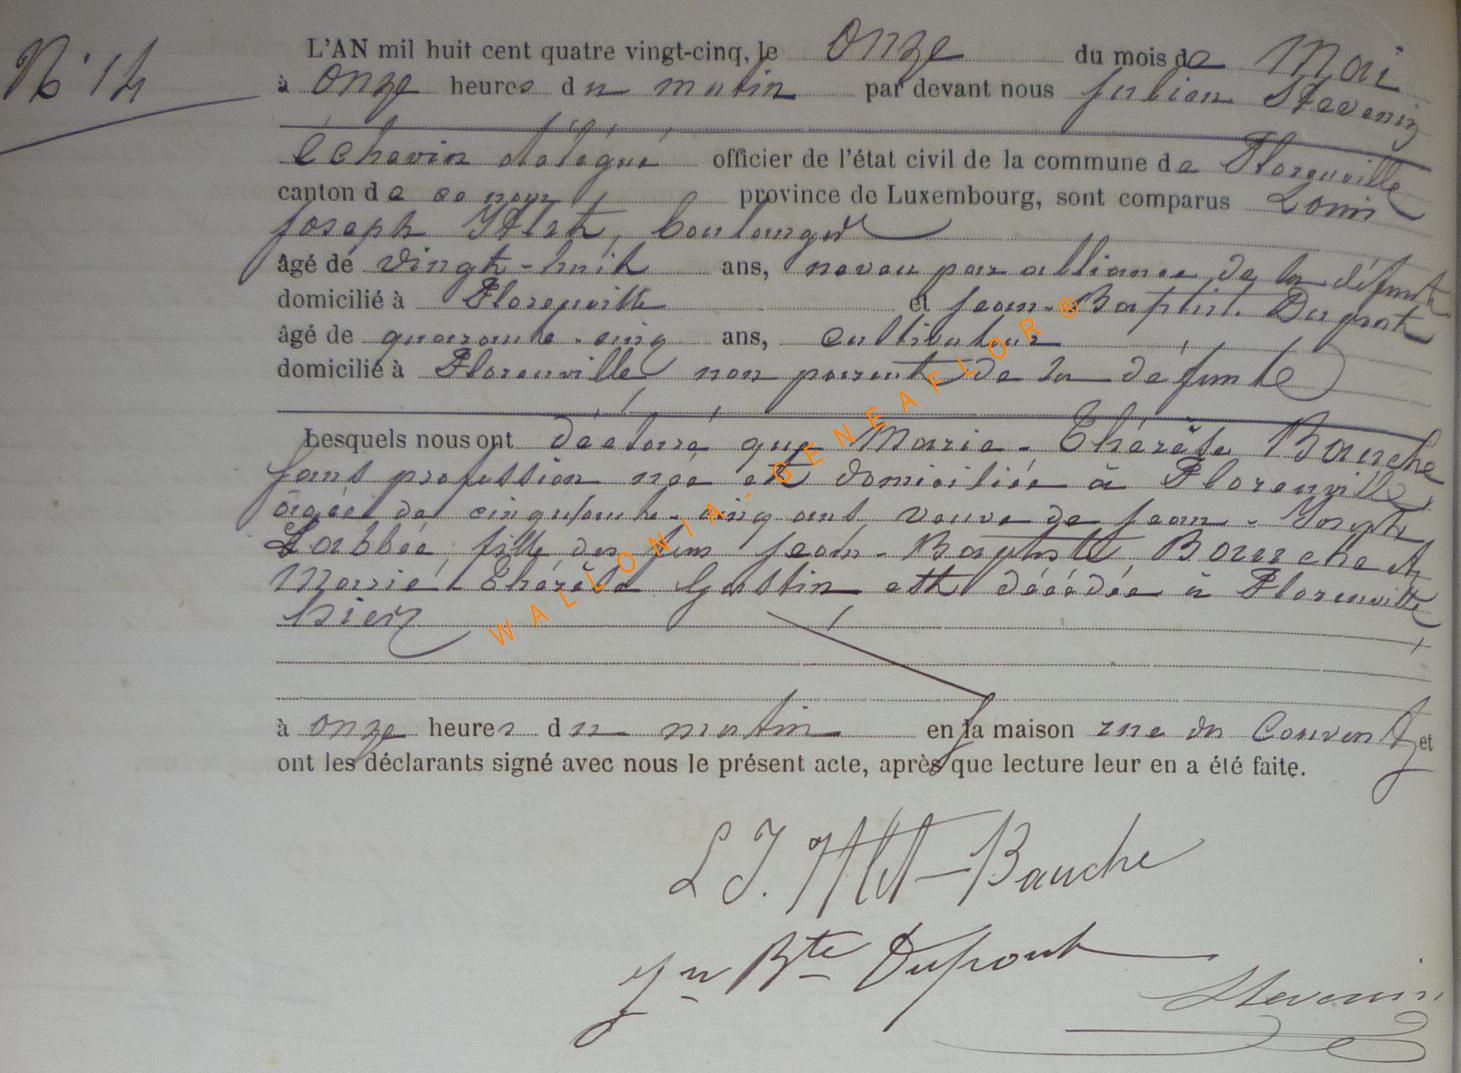 N° 14
L'AN mil huit cent quatre vingt-cinq, le onze du mois de Mai
à onze heures du matin par devant nous Julien Stevenin
échevin délégué officier de l'état civil de la commune de Florenville
canton de ce nom province de Luxembourg, sont comparus Louis
Joseph boulanger
âgé de vingt-huit ans, neveu par alliance de la défunte
domicilié à Florenville et Jean-Baptiste Dupont
âgé de quarante-cinq ans, cultivateur
domicilié à Florenville, non parent de la défunte
Lesquels nous ont déclaré que Marie-Thérèse Bauche
sans profession née et domiciliée à Florenville
âgée de cinquante-cinq ans veuve de Jean-Joseph
Labbée, fille des feus Jean-Baptiste Bauche et
Marie-Thérèse est décédée à Florenville
hier
à onze heures du matin en sa maison rue du Couvent, et
ont les déclarants signé avec nous le présent acte, après que lecture leur en a été faite.
L J. Bauche
Jn Bte Dupont
Stevenin
WALLONIA-GENEAFLOR®